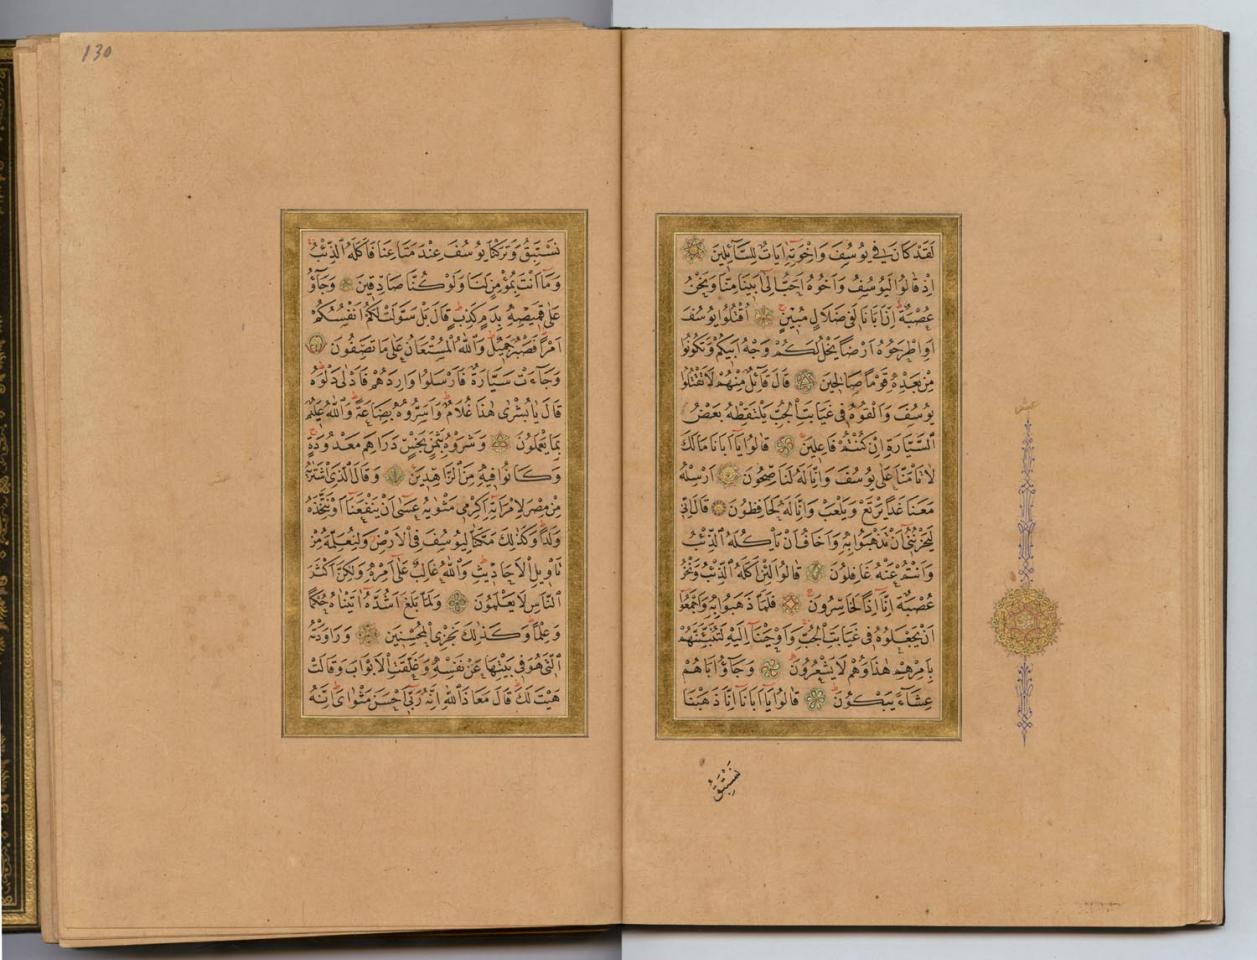 لَقَدْ كَانَ فِي يُوسُفَ وَاِخْوَتِهِ اٰيَاتٌ لِلسَّآئِلِينَ
اِذْ قَالُوا لَيُوسُفُ وَاَخُوهُ اَحَبُّ اِلٰى اَبِينَا مِنَّا وَنَحْنُ
عُصْبَةٌ اِنَّ اَبَانَا لَفِي ضَلَالٍ مُبِينٍ اُقْتُلُوا يُوسُفَ
اَوِ اطْرَحُوهُ اَرْضًا يَخْلُ لَكُمْ وَجْهُ اَبِيكُمْ وَتَكُونُوا
مِنْ بَعْدِهِ قَوْمًا صَالِحِينَ قَالَ قَآئِلٌ مِنْهُمْ لَا تَقْتُلُوا
يُوسُفَ وَاَلْقُوهُ فِي غَيَابَتِ الْجُبِّ يَلْتَقِطْهُ بَعْضُ
السَّيَّارَةِ اِنْ كُنْتُمْ فَاعِلِينَ قَالُوا يَا اَبَانَا مَا لَكَ
لَا تَأْمَنَّا عَلٰى يُوسُفَ وَاِنَّا لَهُ لَنَاصِحُونَ اَرْسِلْهُ
مَعَنَا غَدًا يَرْتَعْ وَيَلْعَبْ وَاِنَّا لَهُ لَحَافِظُونَ قَالَ اِنِّي
لَيَحْزُنُنِي اَنْ تَذْهَبُوا بِهِ وَاَخَافُ اَنْ يَأْكُلَهُ الذِّئْبُ
وَاَنْتُمْ عَنْهُ غَافِلُونَ قَالُوا لَئِنْ اَكَلَهُ الذِّئْبُ وَنَحْنُ
عُصْبَةٌ اِنَّا اِذًا لَخَاسِرُونَ فَلَمَّا ذَهَبُوا بِهِ وَاَجْمَعُوا
اَنْ يَجْعَلُوهُ فِي غَيَابَتِ الْجُبِّ وَاَوْحَيْنَا اِلَيْهِ لَتُنَبِّئَنَّهُمْ
بِاَمْرِهِمْ هٰذَا وَهُمْ لَا يَشْعُرُونَ وَجَآؤُ اَبَاهُمْ
عِشَآءً يَبْكُونَ قَالُوا يَا اَبَانَا اِنَّا ذَهَبْنَا
نَسْتَبِقُ
130
نَسْتَبِقُ وَتَرَكْنَا يُوسُفَ عِنْدَ مَتَاعِنَا فَاَكَلَهُ الذِّئْبُ
وَمَا اَنْتَ بِمُؤْمِنٍ لَنَا وَلَوْ كُنَّا صَادِقِينَ وَجَآؤُ
عَلٰى قَمِيصِهِ بِدَمٍ كَذِبٍ قَالَ بَلْ سَوَّلَتْ لَكُمْ اَنْفُسُكُمْ
اَمْرًا فَصَبْرٌ جَمِيلٌ وَاللّٰهُ الْمُسْتَعَانُ عَلٰى مَا تَصِفُونَ
وَجَآءَتْ سَيَّارَةٌ فَاَرْسَلُوا وَارِدَهُمْ فَاَدْلٰى دَلْوَهُ
قَالَ يَا بُشْرٰى هٰذَا غُلَامٌ وَاَسَرُّوهُ بِضَاعَةً وَاللّٰهُ عَلِيمٌ
بِمَا يَعْمَلُونَ وَشَرَوْهُ بِثَمَنٍ بَخْسٍ دَرَاهِمَ مَعْدُودَةٍ
وَكَانُوا فِيهِ مِنَ الزَّاهِدِينَ وَقَالَ الَّذِي اشْتَرٰيهُ
مِنْ مِصْرَ لِامْرَاَتِهِ اَكْرِمِي مَثْوٰيهُ عَسٰى اَنْ يَنْفَعَنَا اَوْ نَتَّخِذَهُ
وَلَدًا وَكَذٰلِكَ مَكَّنَّا لِيُوسُفَ فِي الْاَرْضِ وَلِنُعَلِّمَهُ مِنْ
تَأْوِيلِ الْاَحَادِيثِ وَاللّٰهُ غَالِبٌ عَلٰى اَمْرِهِ وَلٰكِنَّ اَكْثَرَ
النَّاسِ لَا يَعْلَمُونَ وَلَمَّا بَلَغَ اَشُدَّهُ اٰتَيْنَاهُ حُكْمًا
وَعِلْمًا وَكَذٰلِكَ نَجْزِي الْمُحْسِنِينَ وَرَاوَدَتْهُ
الَّتِي هُوَ فِي بَيْتِهَا عَنْ نَفْسِهِ وَغَلَّقَتِ الْاَبْوَابَ وَقَالَتْ
هَيْتَ لَكَ قَالَ مَعَاذَ اللّٰهِ اِنَّهُ رَبِّي اَحْسَنَ مَثْوَايَ اِنَّهُ